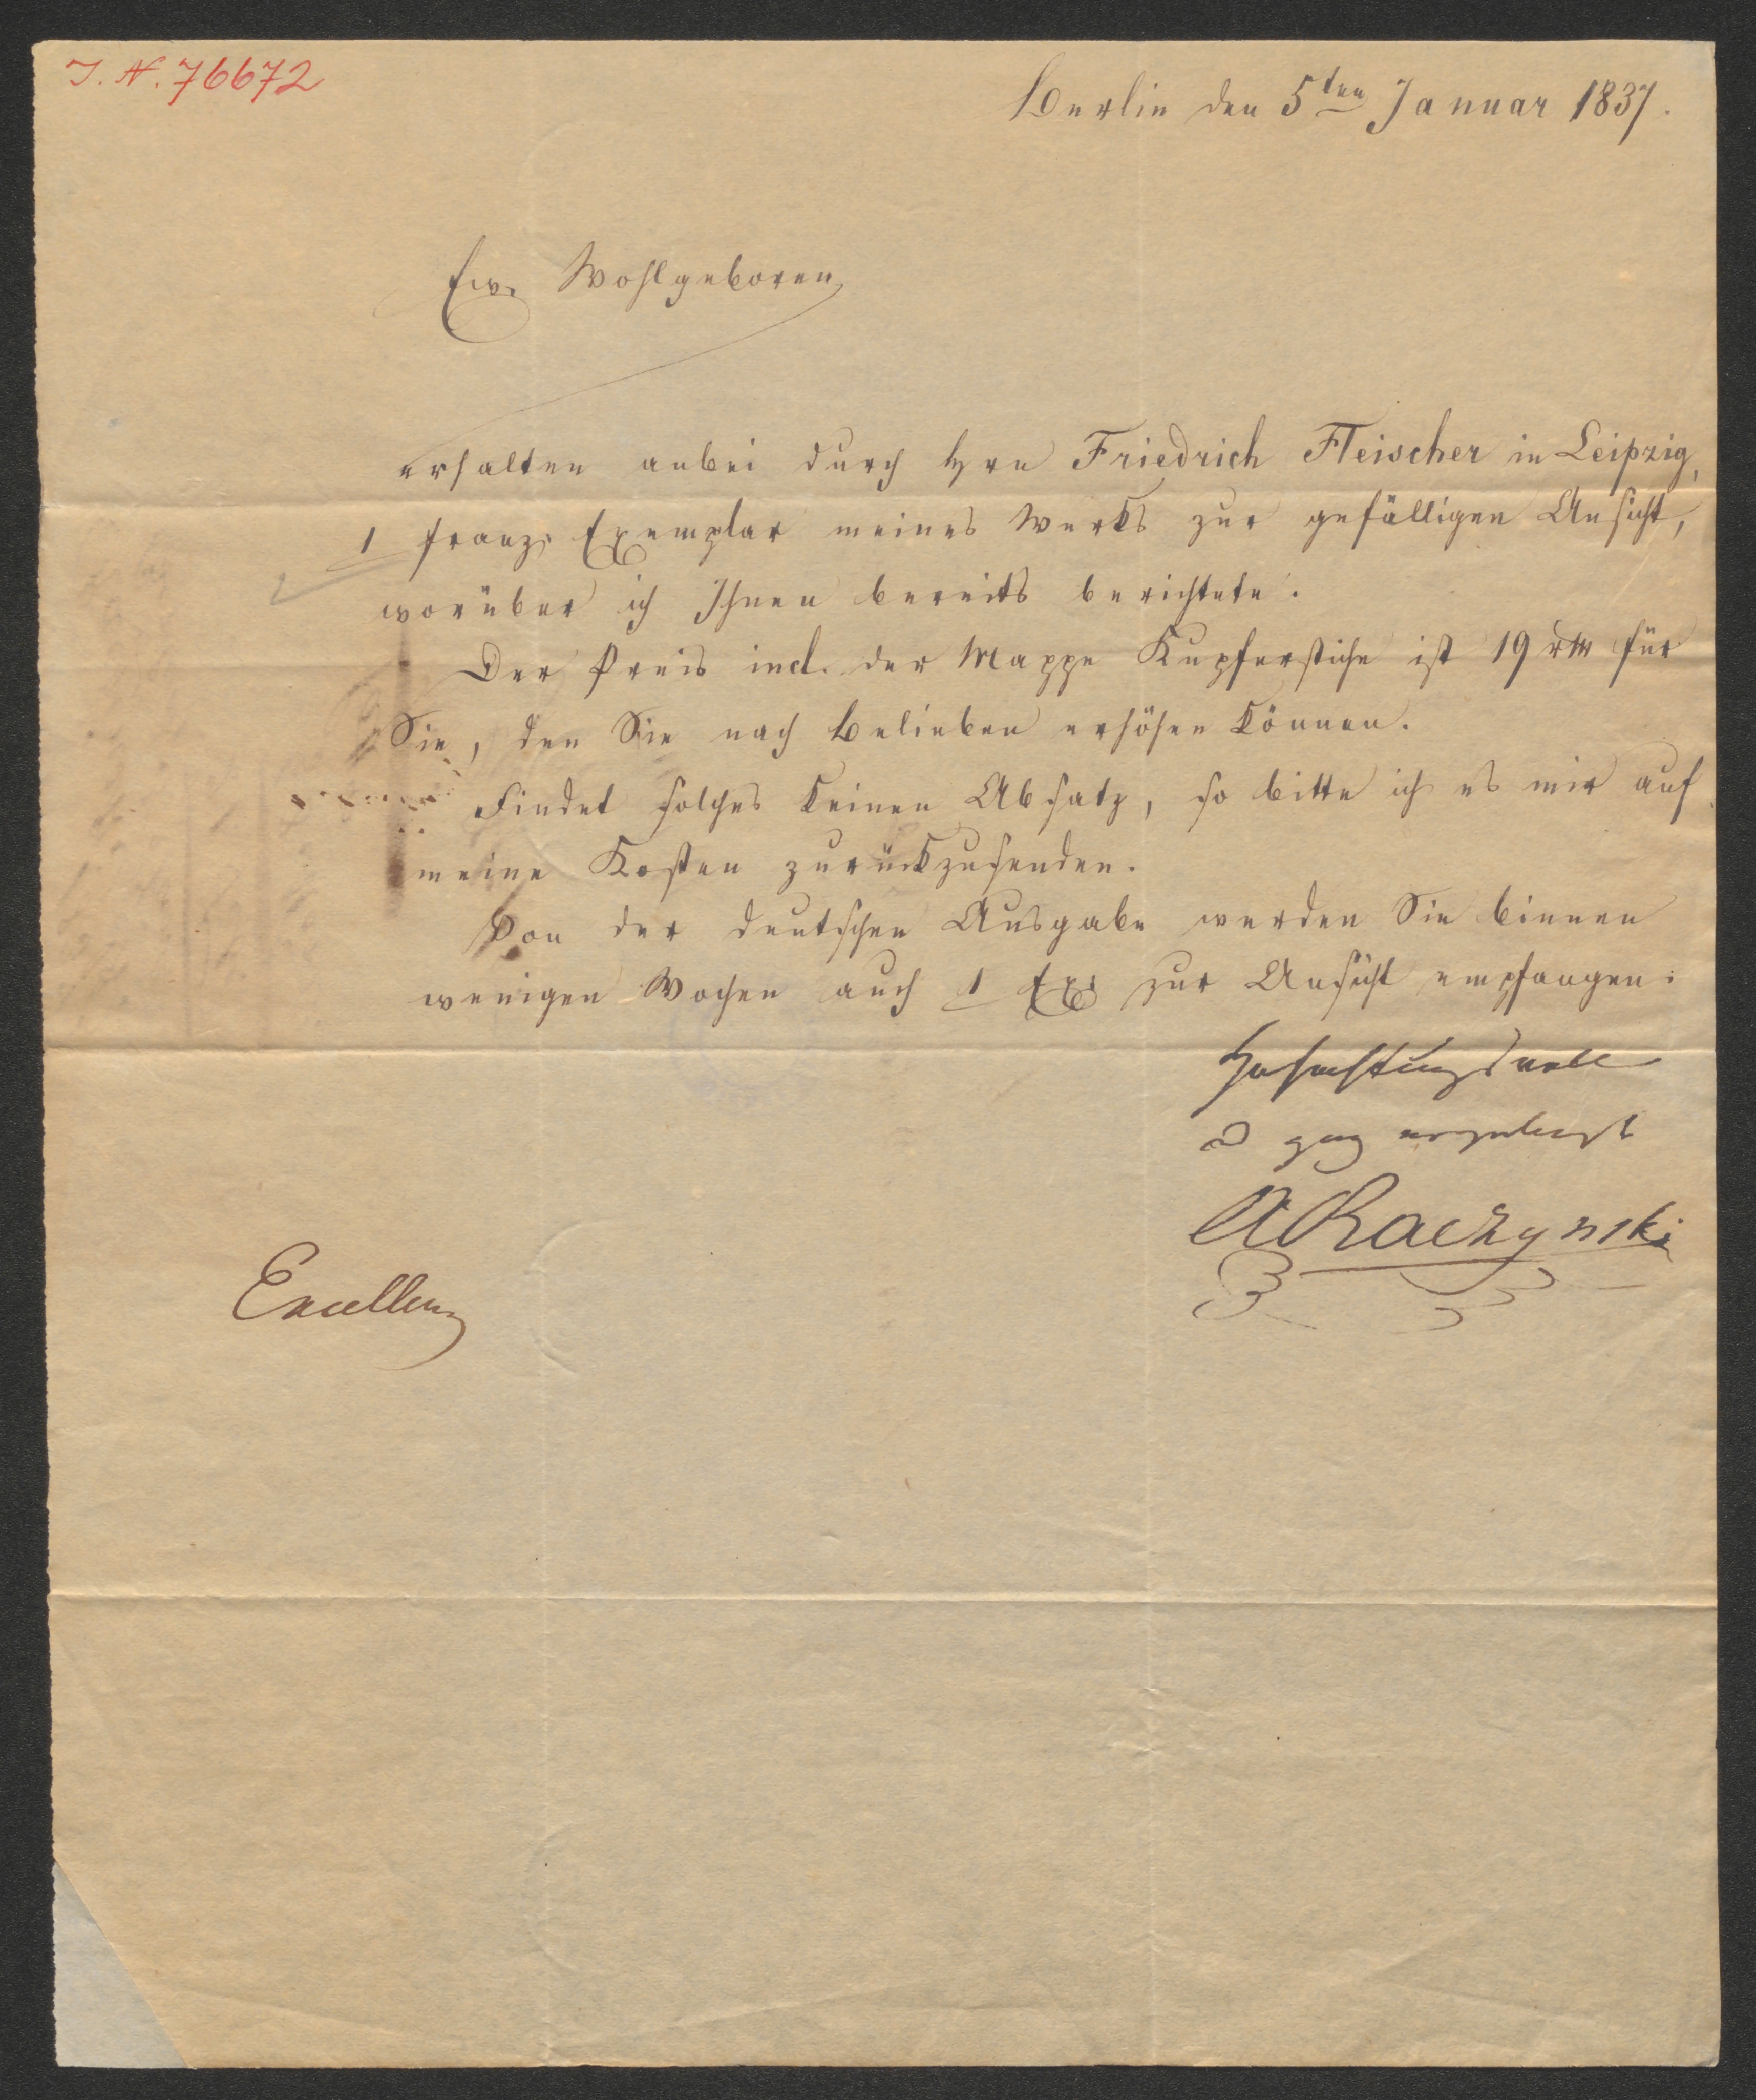 J. N. 76672
Berlin den 5ten Januar 1837.
Ew. Wohlgeboren,
erhalten anbei durch Hrn Friedrich Fleischer in Leipzig,
1 franz. Exemplar meines Werks zur gefälligen Ansicht,
worüber ich Ihnen bereits berichtete.
Der Preis incl. der Mappe Kupferstiche ist 19 rth für
Sie, den Sie nach Belieben erhöhen können.
Findet solches keinen Absatz, so bitte ich es mir auf
meine Kosten zurückzusenden.
Von der deutschen Ausgabe werden Sie binnen
wenigen Wochen auch 1 Ex. zur Ansicht empfangen.
Hochachtungsvoll
ganz ergebenst
ARaczynski
Excellenz